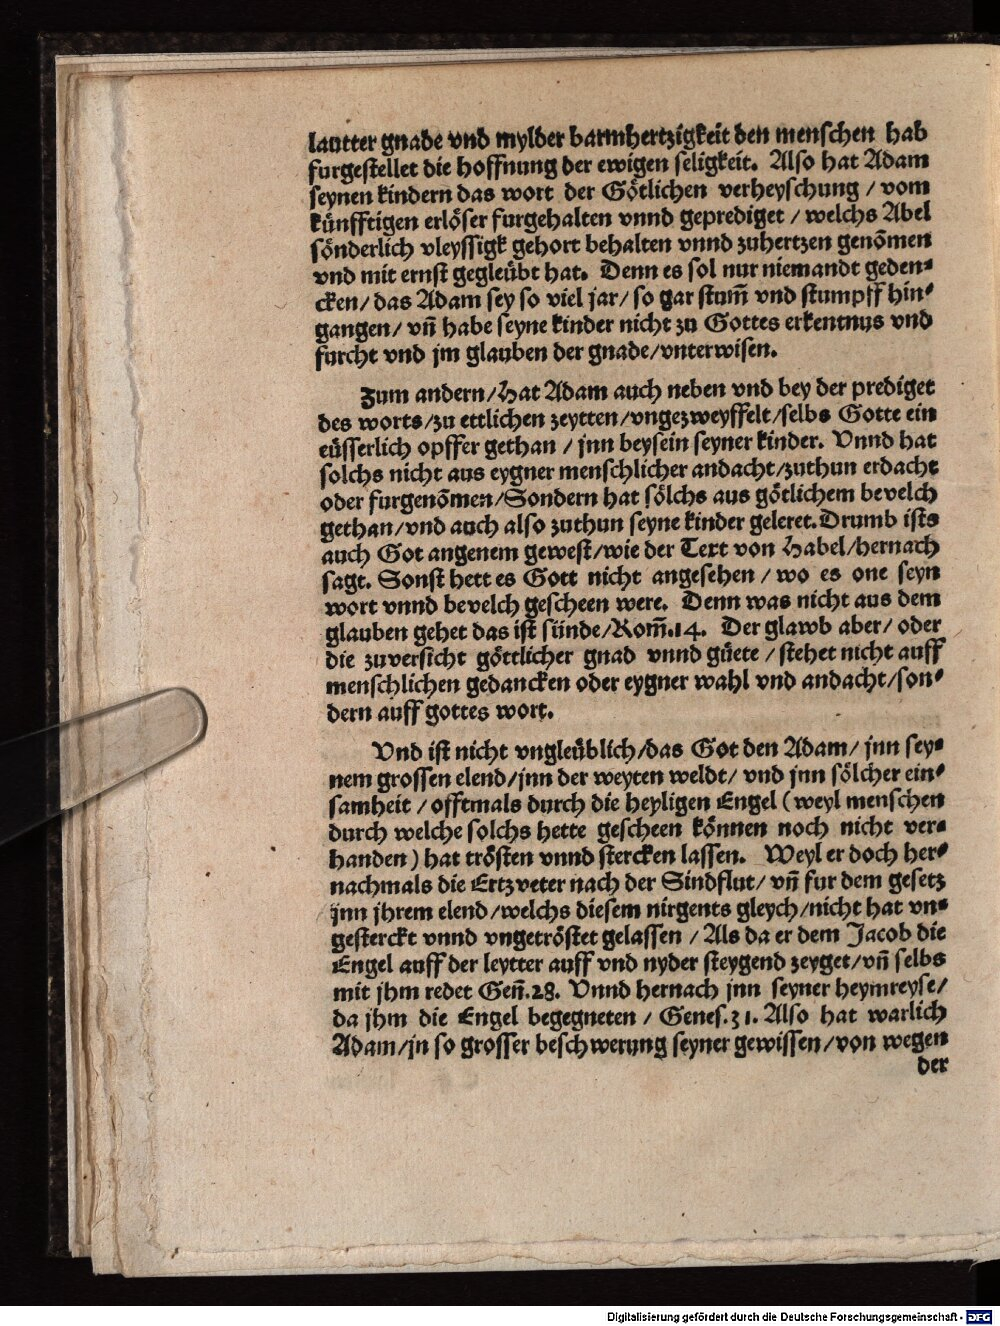 lautter gnade vnd mylder barmhertzigkeit den menschen hab
furgestellet die hoffnung der ewigen seligkeit. Also hat Adam
seynen kindern das wort der Götlichen verheyschung / vom
künfftigen erlöser furgehalten vnnd geprediget / welchs Abel
sönderlich vleyssigk gehort behalten vnnd zuhertzen genōmen
vnd mit ernst gegleübt hat. Denn es sol nur niemandt geden⸗
cken / das Adam sey so viel jar / so gar stum̄ vnd stumpff hin⸗
gangen / vn̄ habe seyne kinder nicht zu Gottes erkentnus vnd
furcht vnd jm glauben der gnade / vnterwisen.
Zum andern / Hat Adam auch neben vnd bey der prediget
des worts / zu ettlichen zeytten / vngezweyffelt / selbs Gotte ein
eüsserlich opffer gethan / jnn beysein seyner kinder. Vnnd hat
solchs nicht aus eygner menschlicher andacht / zuthun erdacht
oder furgenōmen / Sondern hat sölchs aus götlichem bevelch
gethan / vnd auch also zuthun seyne kinder geleret. Drumb ists
auch Got angenem gewest / wie der Text von Habel / hernach
sagt. Sonst hett es Gott nicht angesehen / wo es one seyn
wort vnnd bevelch gescheen were. Denn was nicht aus dem
glauben gehet das ist sünde / Rom̄.14. Der glawb aber / oder
die zuversicht göttlicher gnad vnnd güete / stehet nicht auff
menschlichen gedancken oder eygner wahl vnd andacht / son⸗
dern auff gottes wort.
Vnd ist nicht vngleüblich / das Got den Adam / jnn sey⸗
nem grossen elend / jnn der weyten weldt / vnd jnn sölcher ein⸗
samheit / offtmals durch die heyligen Engel ( weyl menschen
durch welche solchs hette gescheen können noch nicht ver⸗
handen ) hat trösten vnnd stercken lassen. Weyl er doch her⸗
nachmals die Ertzveter nach der Sindflut / vn̄ fur dem gesetz
jnn jhrem elend / welchs diesem nirgents gleych / nicht hat vn⸗
gesterckt vnnd vngetröstet gelassen / Als da er dem Jacob die
Engel auff der leytter auff vnd nyder steygend zeyget / vn̄ selbs
mit jhm redet Gen̄.28. Vnnd hernach jnn seyner heymreyse /
da jhm die Engel begegneten / Genes.31. Also hat warlich
Adam / jn so grosser beschwerung seyner gewissen / von wegen
der
Digitalisierung gefördert durch die Deutsche Forschungsgemeinschaft - DFG